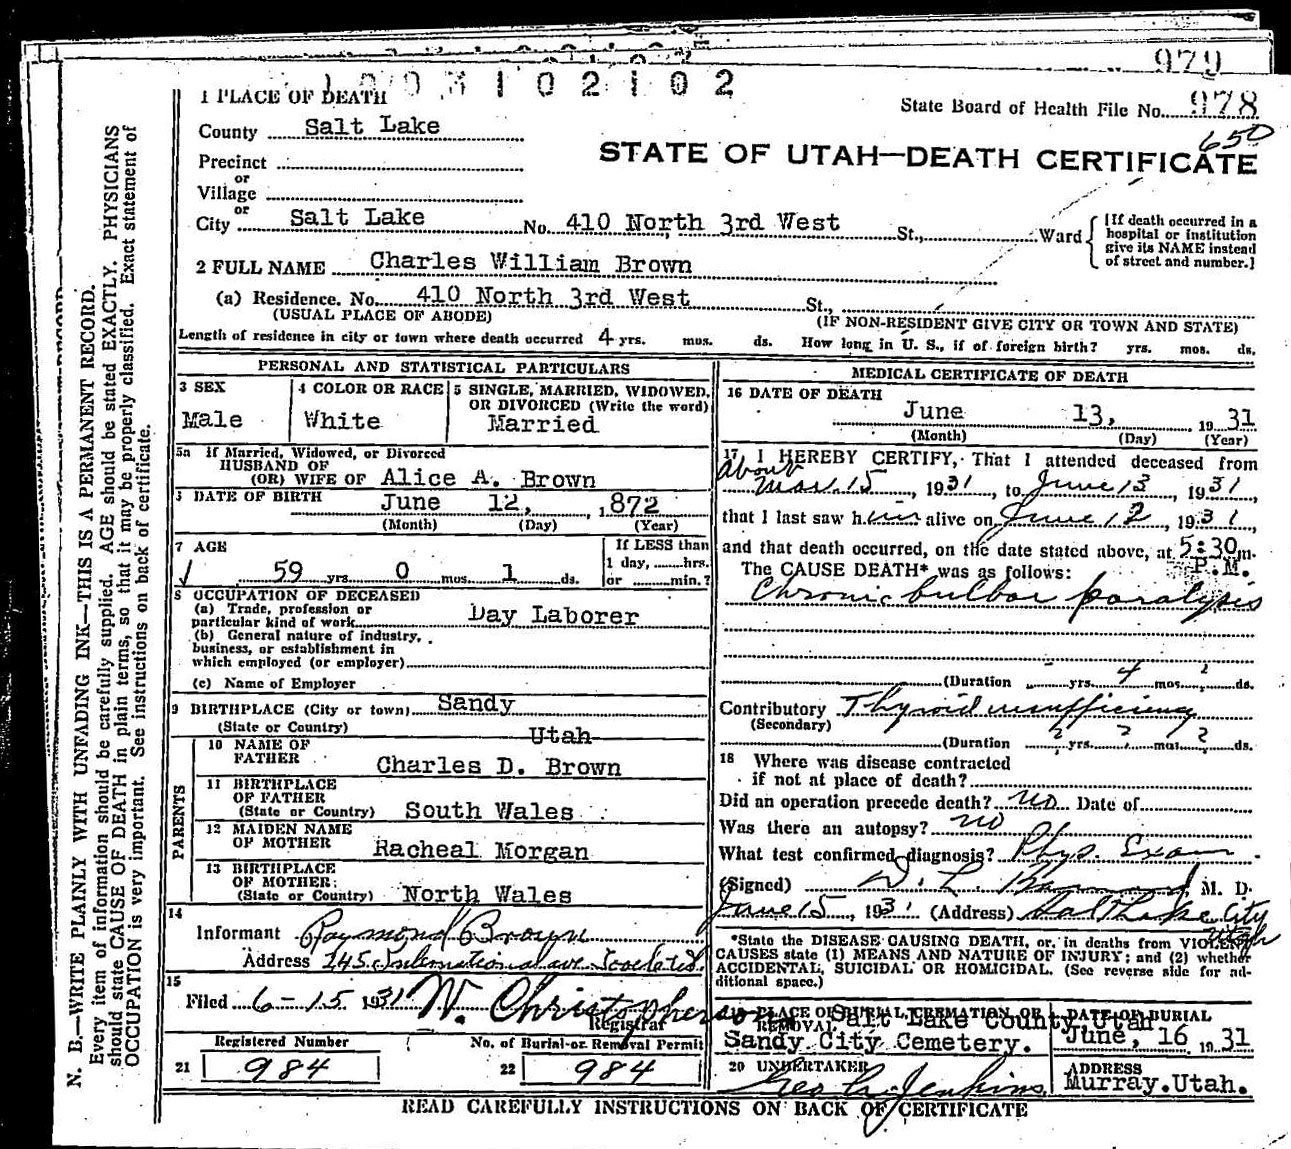 979
1003102102
1 PLACE OF DEATH
State Board of Health File No. 978
650
County Salt Lake
STATE OF UTAH—DEATH CERTIFICATE
Precinct
or
Village
or
City Salt Lake No. 410 North 3rd West St., Ward
[If death occurred in a
hospital or institution
give its NAME instead
of street and number.]
2 FULL NAME Charles William Brown
(a) Residence. No. 410 North 3rd West St.,
(USUAL PLACE OF ABODE) (IF NON-RESIDENT GIVE CITY OR TOWN AND STATE)
Length of residence in city or town where death occurred 4 yrs. mos. ds. How long in U. S., if of foreign birth? yrs. mos. ds.
PERSONAL AND STATISTICAL PARTICULARS
3 SEX
Male
4 COLOR OR RACE
White
5 SINGLE, MARRIED, WIDOWED,
OR DIVORCED (Write the word)
Married
5a If Married, Widowed, or Divorced
HUSBAND OF
(OR) WIFE OF Alice A. Brown
DATE OF BIRTH June 12, 1872
(Month) (Day) (Year)
7 AGE
59 yrs. 0 mos. 1 ds.
If LESS than
1 day, hrs.
or min.?
8 OCCUPATION OF DECEASED
(a) Trade, profession or
particular kind of work Day Laborer
(b) General nature of industry,
business, or establishment in
which employed (or employer)
(c) Name of Employer
9 BIRTHPLACE (City or town) Sandy
(State or Country) Utah
PARENTS
10 NAME OF
FATHER Charles D. Brown
11 BIRTHPLACE
OF FATHER
(State or Country) South Wales
12 MAIDEN NAME
OF MOTHER Racheal Morgan
13 BIRTHPLACE
OF MOTHER:
(State or Country) North Wales
14
Informant Raymond Brown
Address 145 International ave
15
Filed 6-15 1931 W. Christopherson
Registrar
Registered Number
21 984
No. of Burial or Removal Permit
22 984
MEDICAL CERTIFICATE OF DEATH
16 DATE OF DEATH
June 13, 1931
(Month) (Day) (Year)
17 I HEREBY CERTIFY, That I attended deceased from
about
Mar. 15, 1931, to June 13, 1931,
that I last saw him alive on June 12, 1931,
and that death occurred, on the date stated above, at 5:30 m.
P.M.
The CAUSE DEATH* was as follows:
Chronic bulbar paralysis
(Duration yrs. 4 mos. ? ds.
Contributory Thyroid insufficiency
(Secondary)
(Duration ? yrs. ? mos. ? ds.
18 Where was disease contracted
if not at place of death?
Did an operation precede death? no Date of
Was there an autopsy? no
What test confirmed diagnosis? Phys. Exam
(Signed) D. L. M. D.
June 15, 1931 (Address) Salt Lake City
Utah
*State the DISEASE CAUSING DEATH, or, in deaths from VIOLENT
CAUSES state (1) MEANS AND NATURE OF INJURY; and (2) whether
ACCIDENTAL, SUICIDAL OR HOMICIDAL. (See reverse side for additional space.)
PLACE OF BURIAL, CREMATION, OR
REMOVAL Salt Lake County, Utah
Sandy City Cemetery.
DATE OF BURIAL
June, 16 1931
20 UNDERTAKER
Geo. A. Jenkins
ADDRESS
Murray. Utah.
READ CAREFULLY INSTRUCTIONS ON BACK OF CERTIFICATE
N. B.—WRITE PLAINLY WITH UNFADING INK—THIS IS A PERMANENT RECORD.
Every item of information should be carefully supplied. AGE should be stated EXACTLY. PHYSICIANS
should state CAUSE OF DEATH in plain terms, so that it may be properly classified. Exact statement of
OCCUPATION is very important. See instructions on back of certificate.